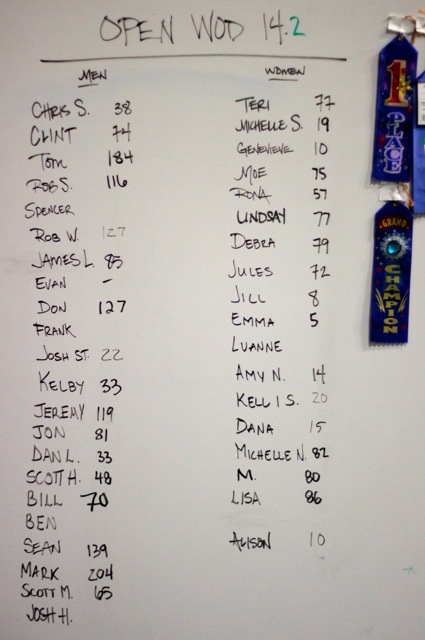 OPEN WOD 14.2
MEN
CHRIS S. 38
CLINT 74
TOM 184
ROB S. 116
SPENCER
ROB W. 127
JAMES L. 85
EVAN -
DON 127
FRANK
JOSH ST. 22
KELBY 33
JEREMY 119
JON 81
DAN L. 33
SCOTT H. 48
BILL 70
BEN
SEAN 139
MARK 204
SCOTT M. 65
JOSH H.
WOMEN
TERI 77
MICHELLE S. 19
GENEVIEVE 10
MOE 75
RONA 57
LINDSAY 77
DEBRA 79
JULES 72
JILL 8
EMMA 5
LUANNE
AMY N. 14
KELLI S. 20
DANA 15
MICHELLE N. 82
M. 80
LISA 86
ALISON 10
1ST
PLACE
GRAND
CHAMPION